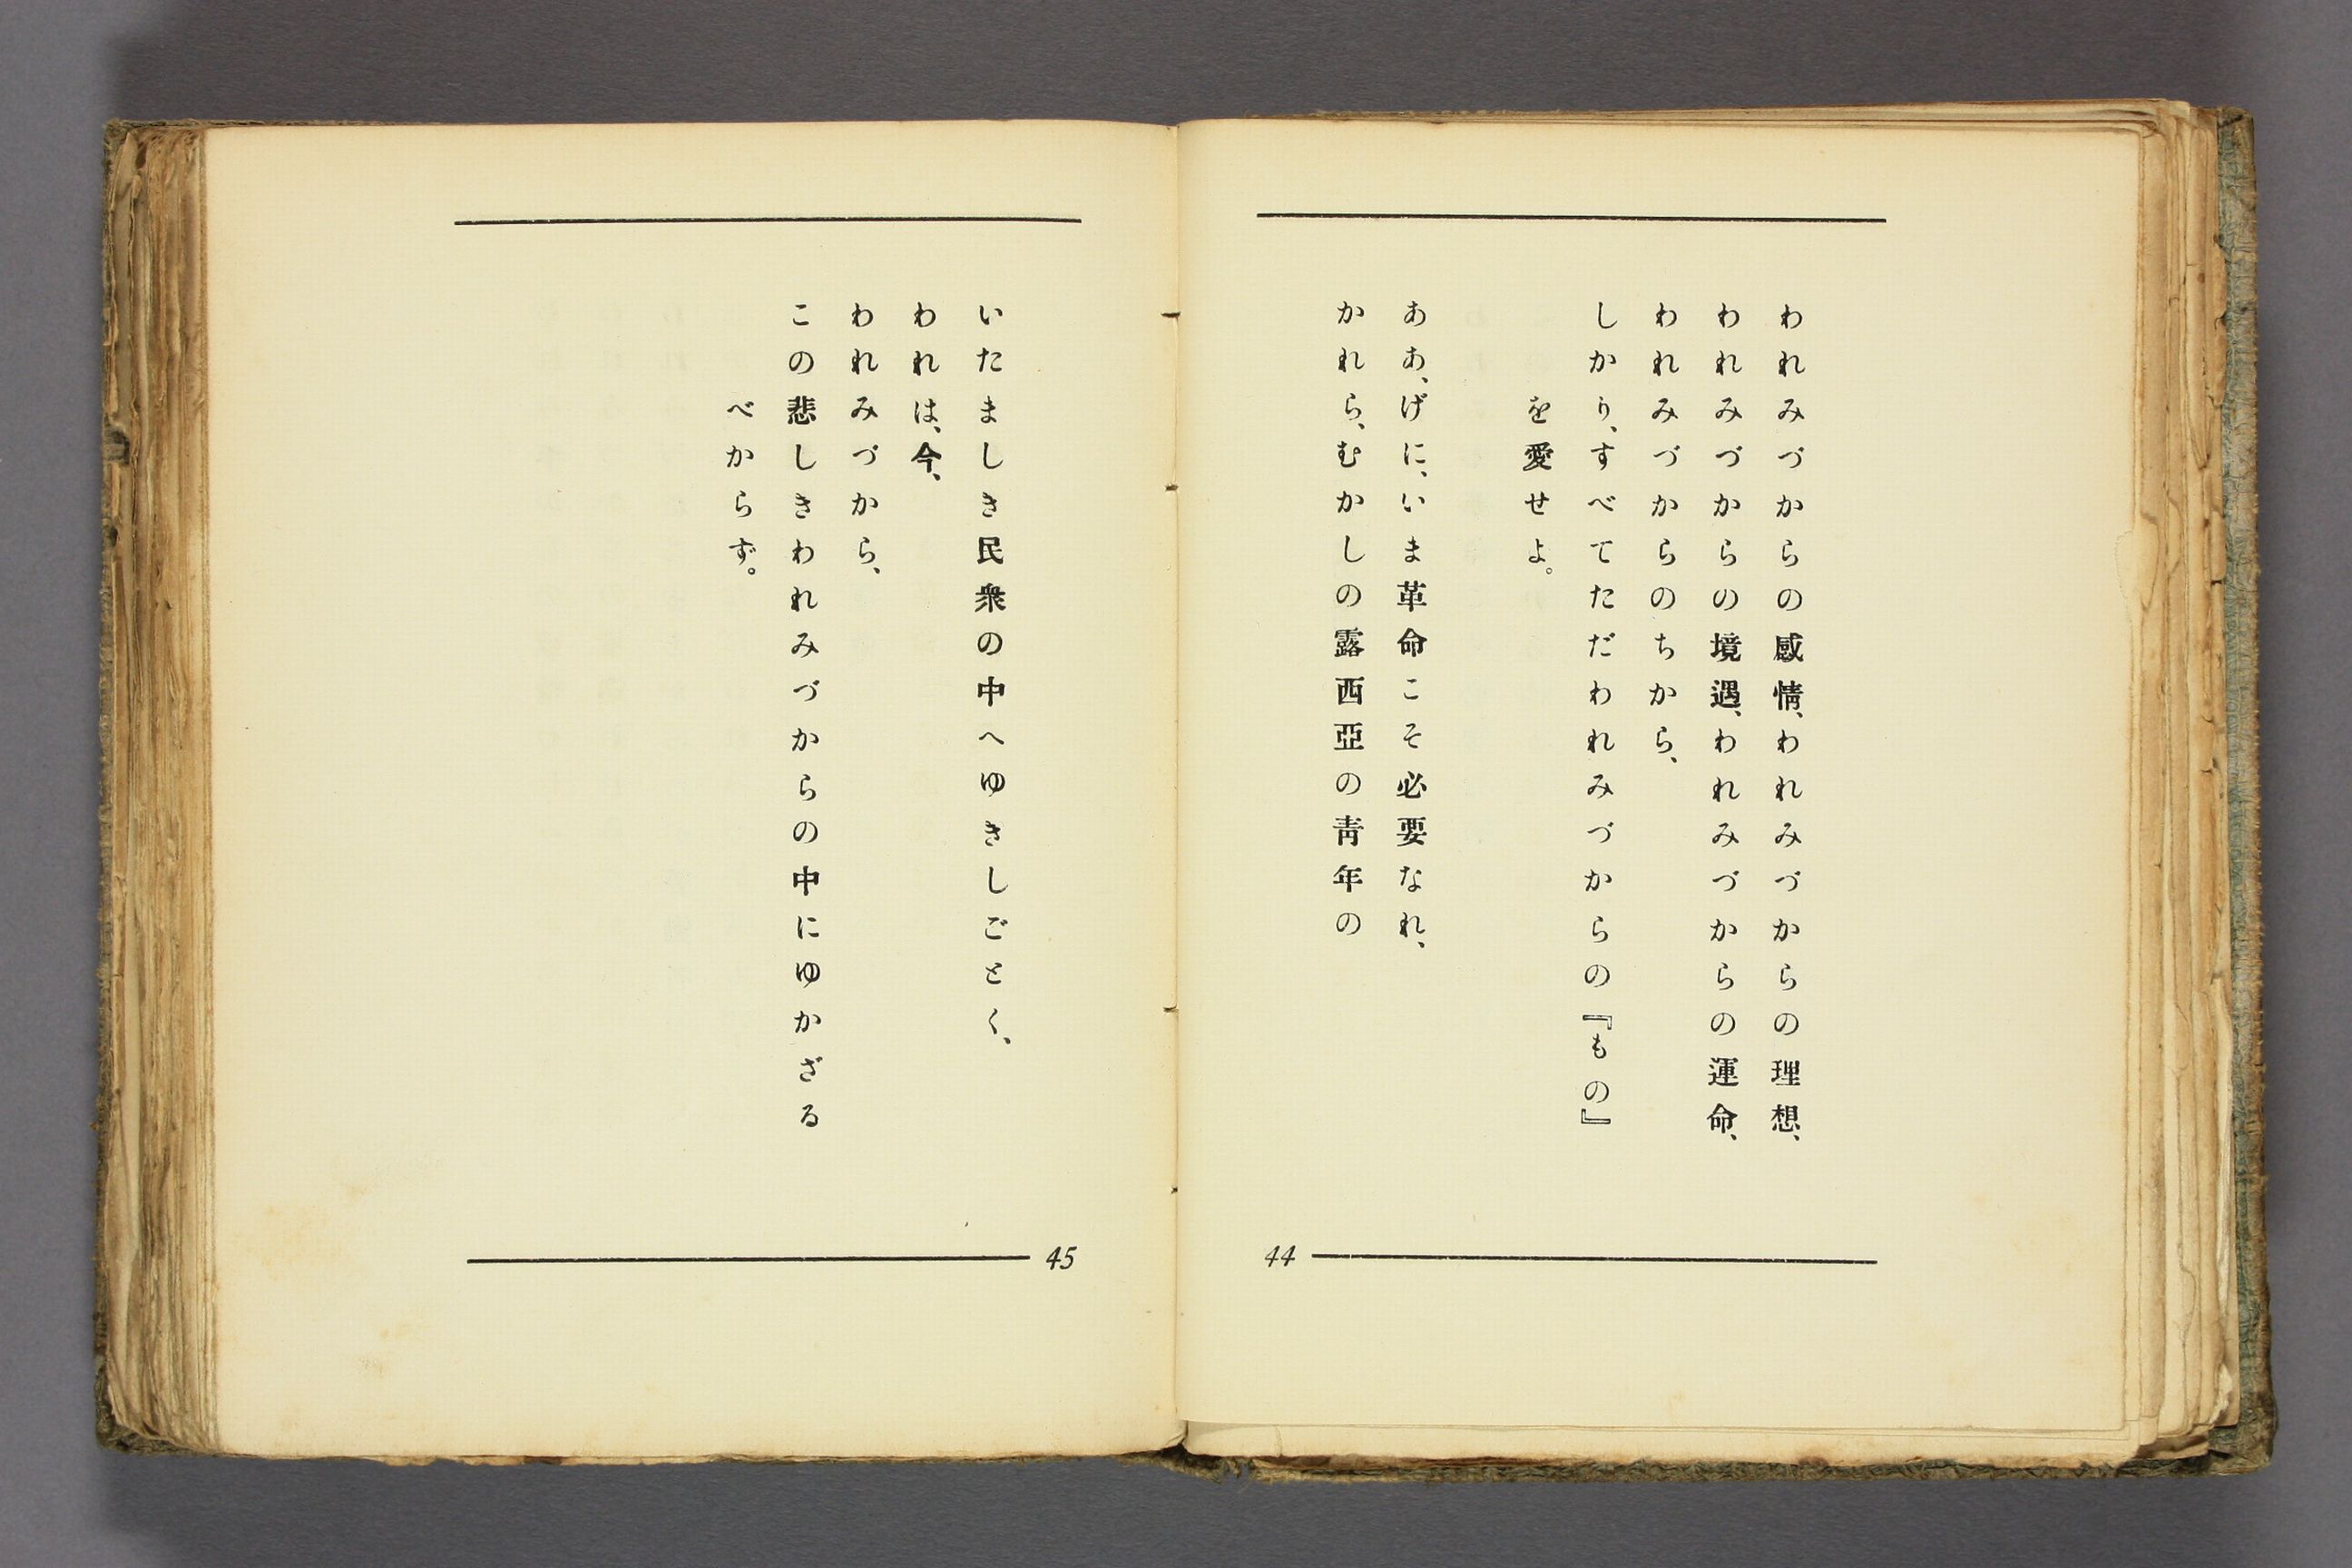 われみづからの感情、われみづからの理想、
われみづからの境遇、われみづからの運命、
われみづからのちから、
しかり、すべてただわれみづからの『もの』
を愛せよ。
ああ、げに、いま革命こそ必要なれ、
かれら、むかしの露西亞の靑年の
44
いたましき民衆の中へゆきしごとく、
われは、今、
われみづから、
この悲しきわれみづからの中にゆかざる
べからず。
45